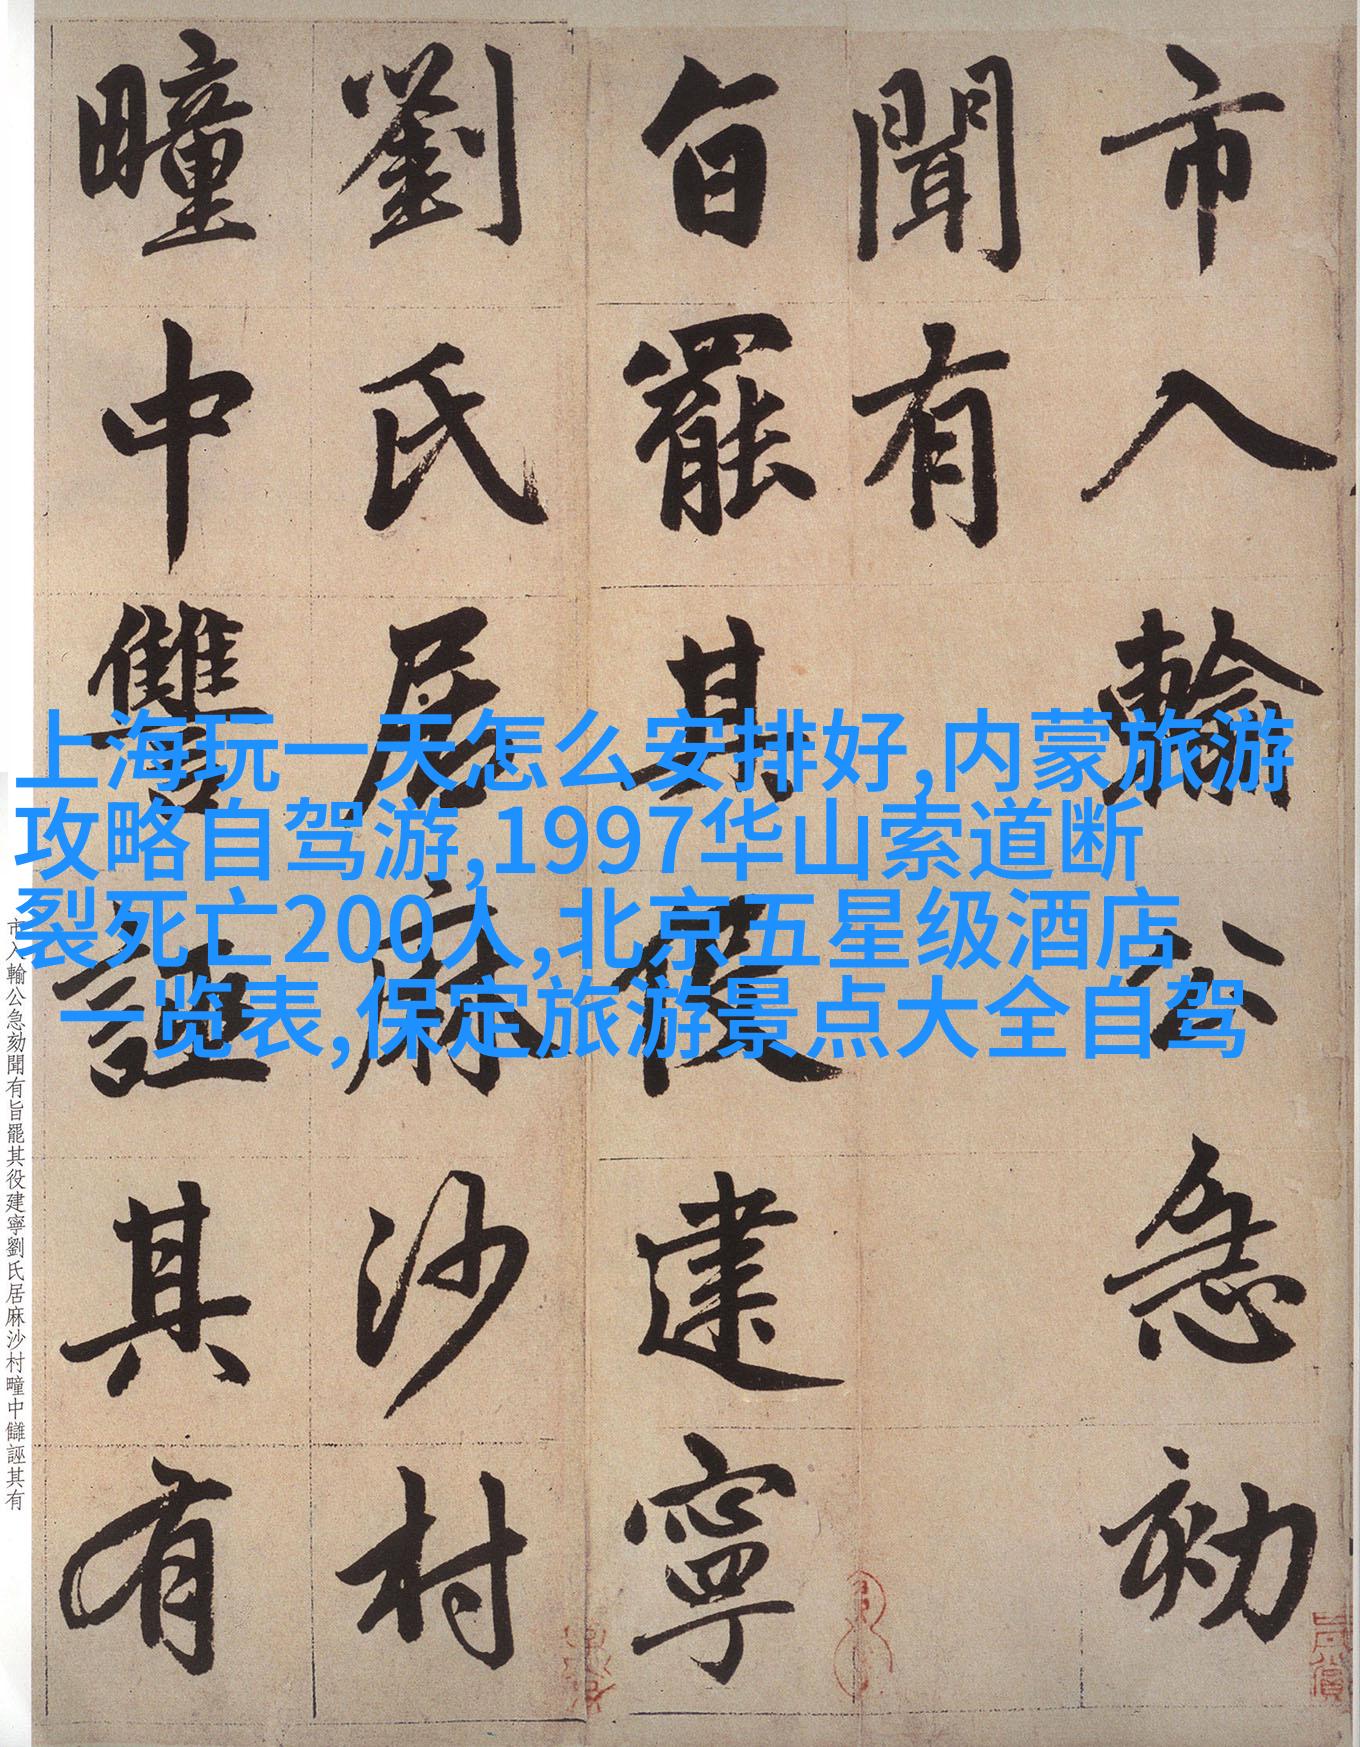 上海玩一天怎么安排好,内蒙旅游
攻略自驾游,1997华山索道断
裂死亡200人,北京五星级酒店
一览表,保定旅游景点大全自驾
市入輸公急劾
聞有
旨罷其役建寧
劉氏居麻沙村
疃中讐誣其有
市入輸公急劾聞有旨罷其役建寧劉氏居麻沙村疃中讎誣其有